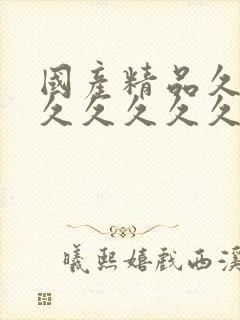 國產精品久
久久久久久
曦熙嬉戲西溪